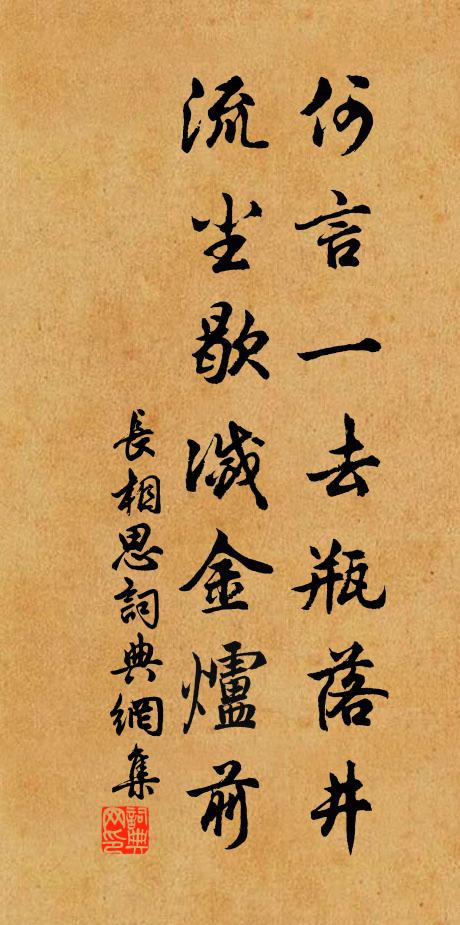 何言一去瓶落井
流尘歇灭金爐前
長相思詞典網集
詞典网印